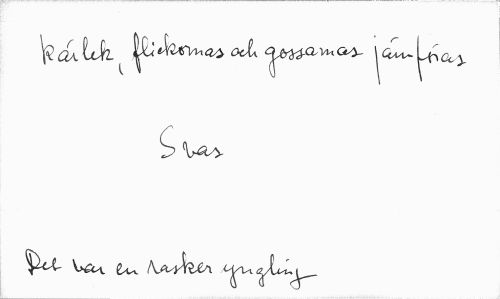 Kärlek, flickornas och gossarnas jämföras
Svas
Det var en rasker yngling